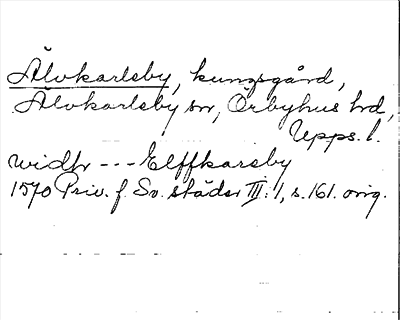 Älvkarleby, kungsgård,
Älvkarleby sn, Örbyhus hd,
Upps. l.
widh --- Elffkarsby
1570 Priv. f. Sv. städer III: 1, s. 161. orig.